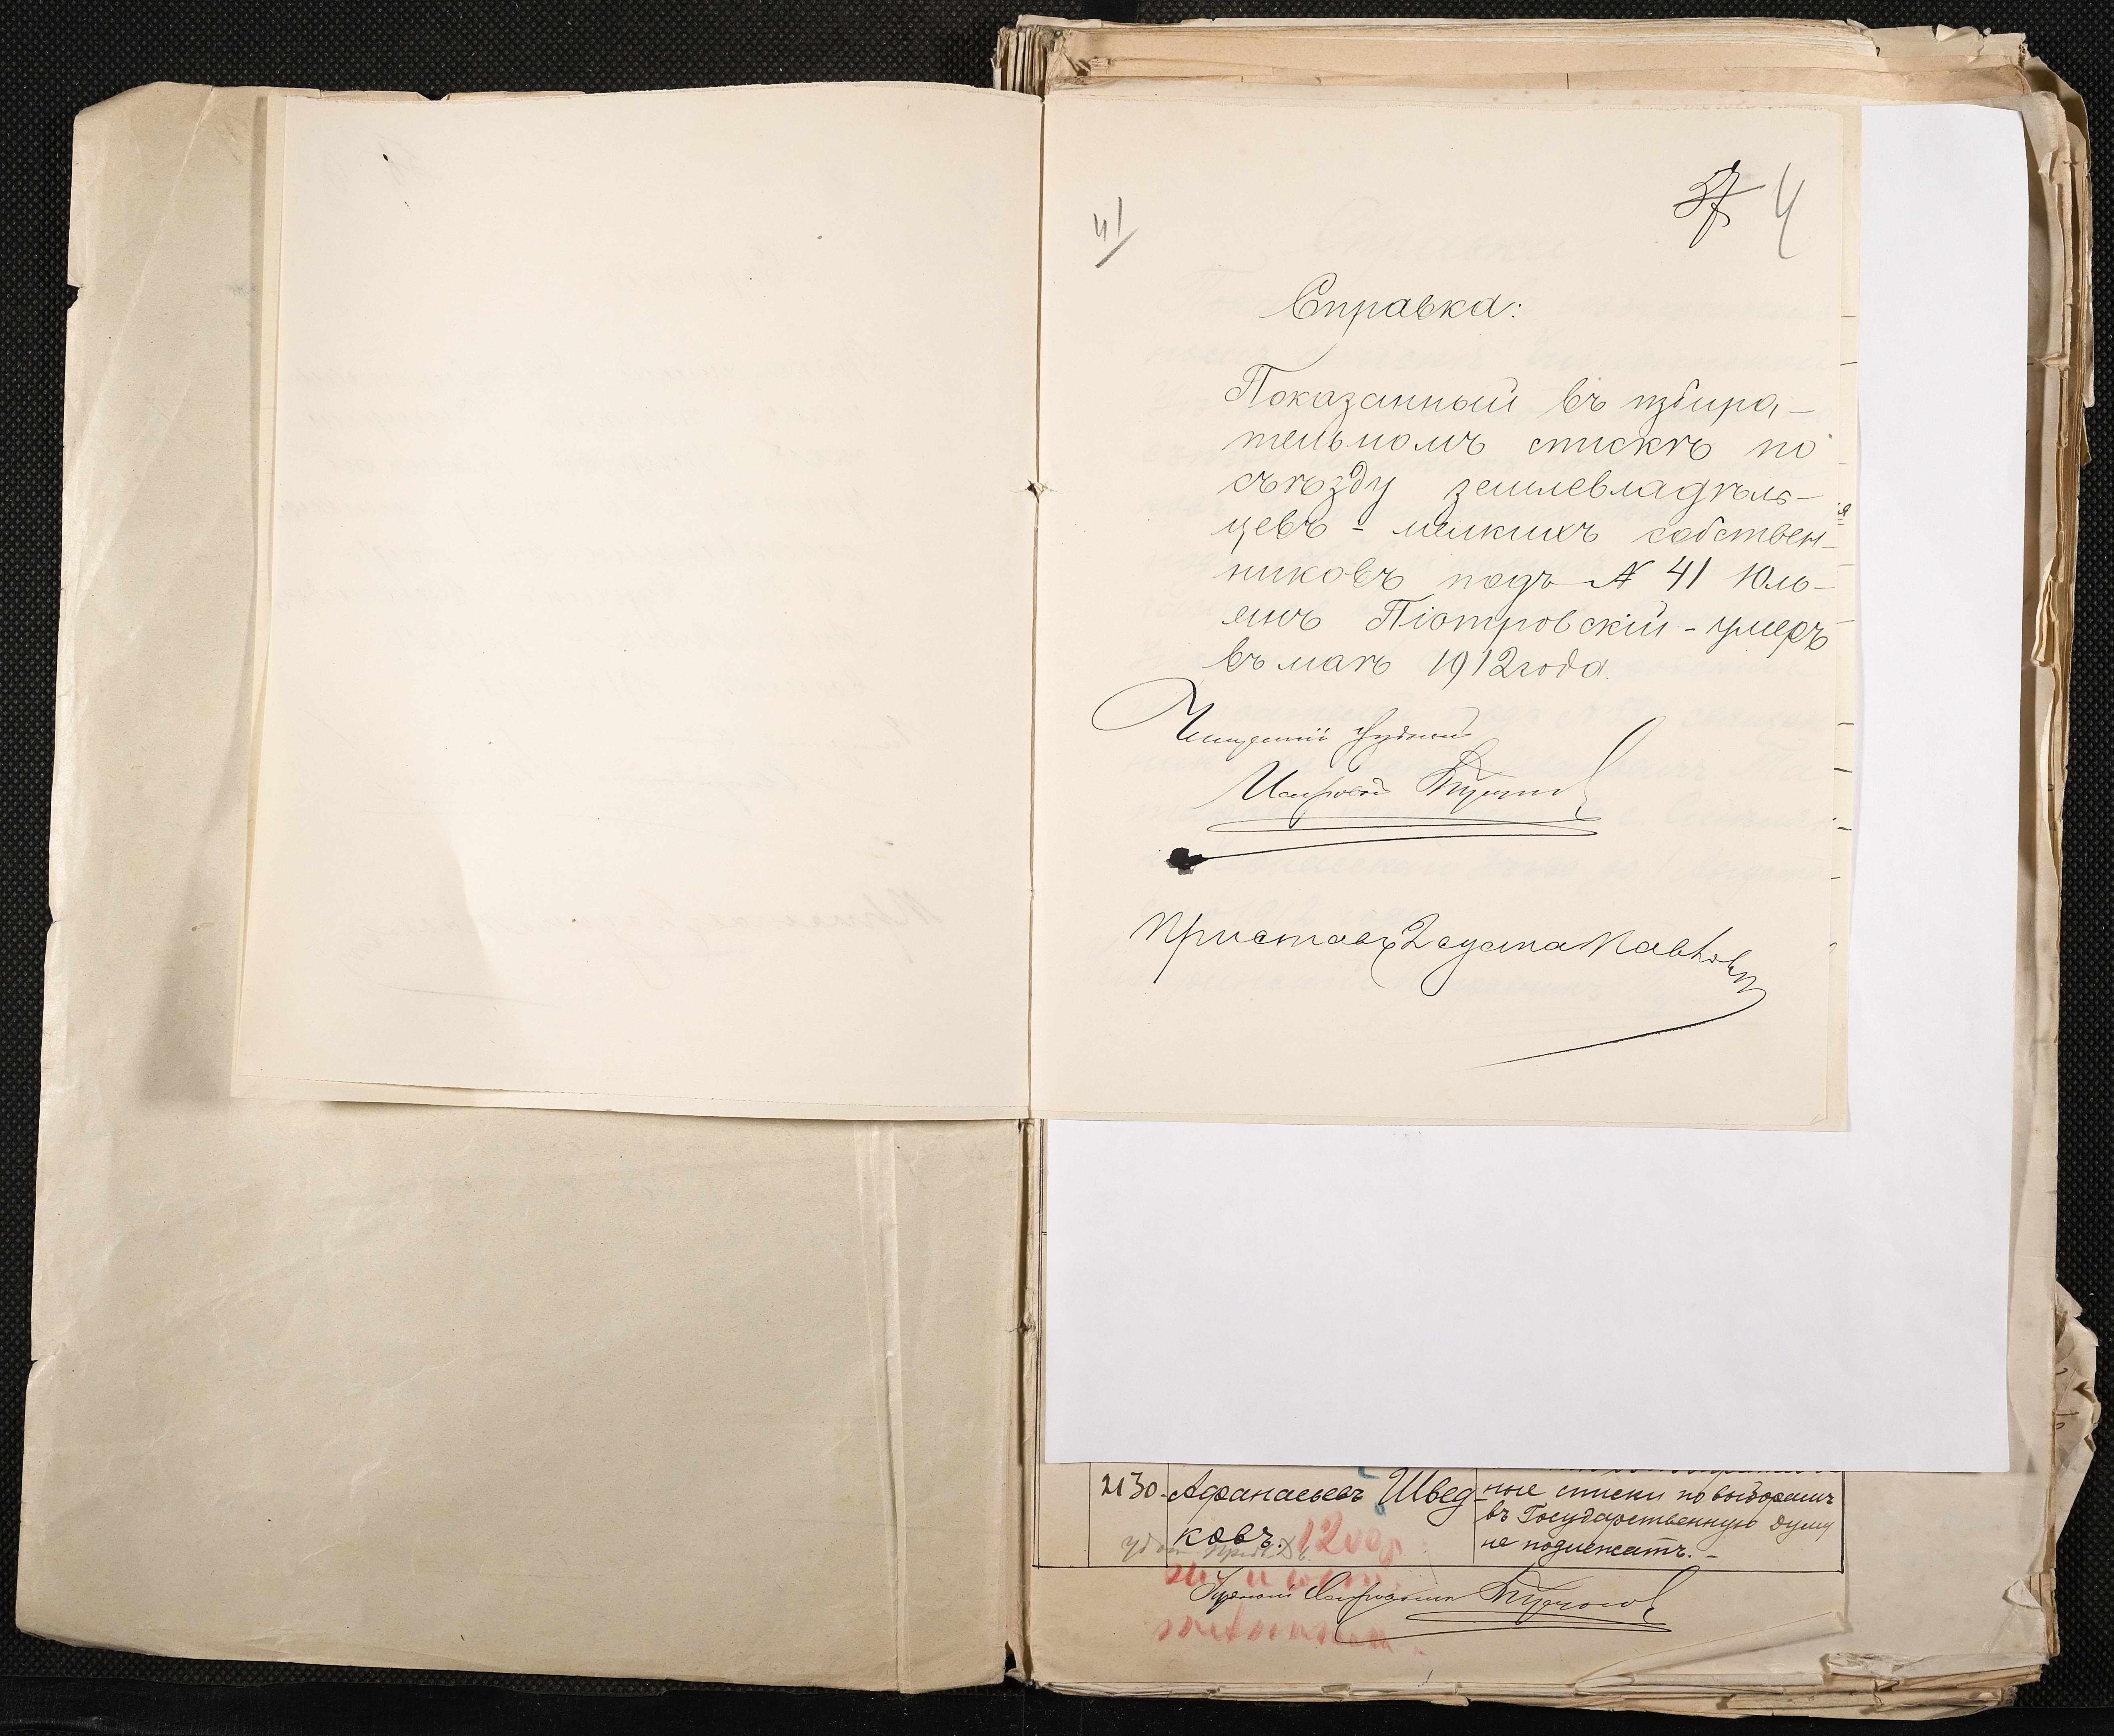 41
37 4
Справка:
Показанный въ избира-
тельномъ спискѣ по
съѣзду землевладѣль-
цевъ - мелкихъ собствен-
никовъ подъ № 41 Юль-
янъ Піотровскій - умеръ
въ маѣ 1912 года.
Приставъ 2 стана
2130. Афанасьевъ Швед-
ковъ. 1200
ные списки по выборамъ
въ Государственную Думу
не подлежатъ. -